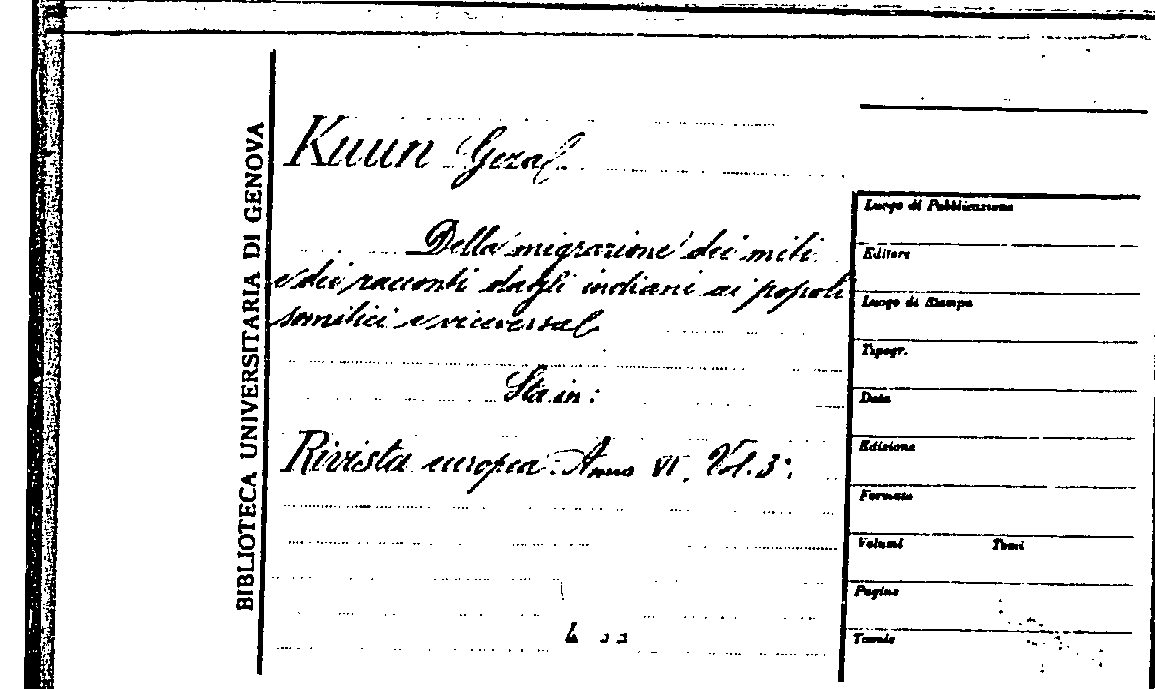 BIBLIOTECA UNIVERSITARIA DI GENOVA
Kuun Geza
Della migrazione dei miti
e dei racconti dagli indiani ai popoli
semitici e viceversa
Sta in:
Rivista europea. Anno VI, Vol. 3°.
Luogo di Pubblicazione
Editore
Luogo di Stampa
Tipogr.
Data
Edizione
Formato
Volumi Tomi
Pagine
Tavole